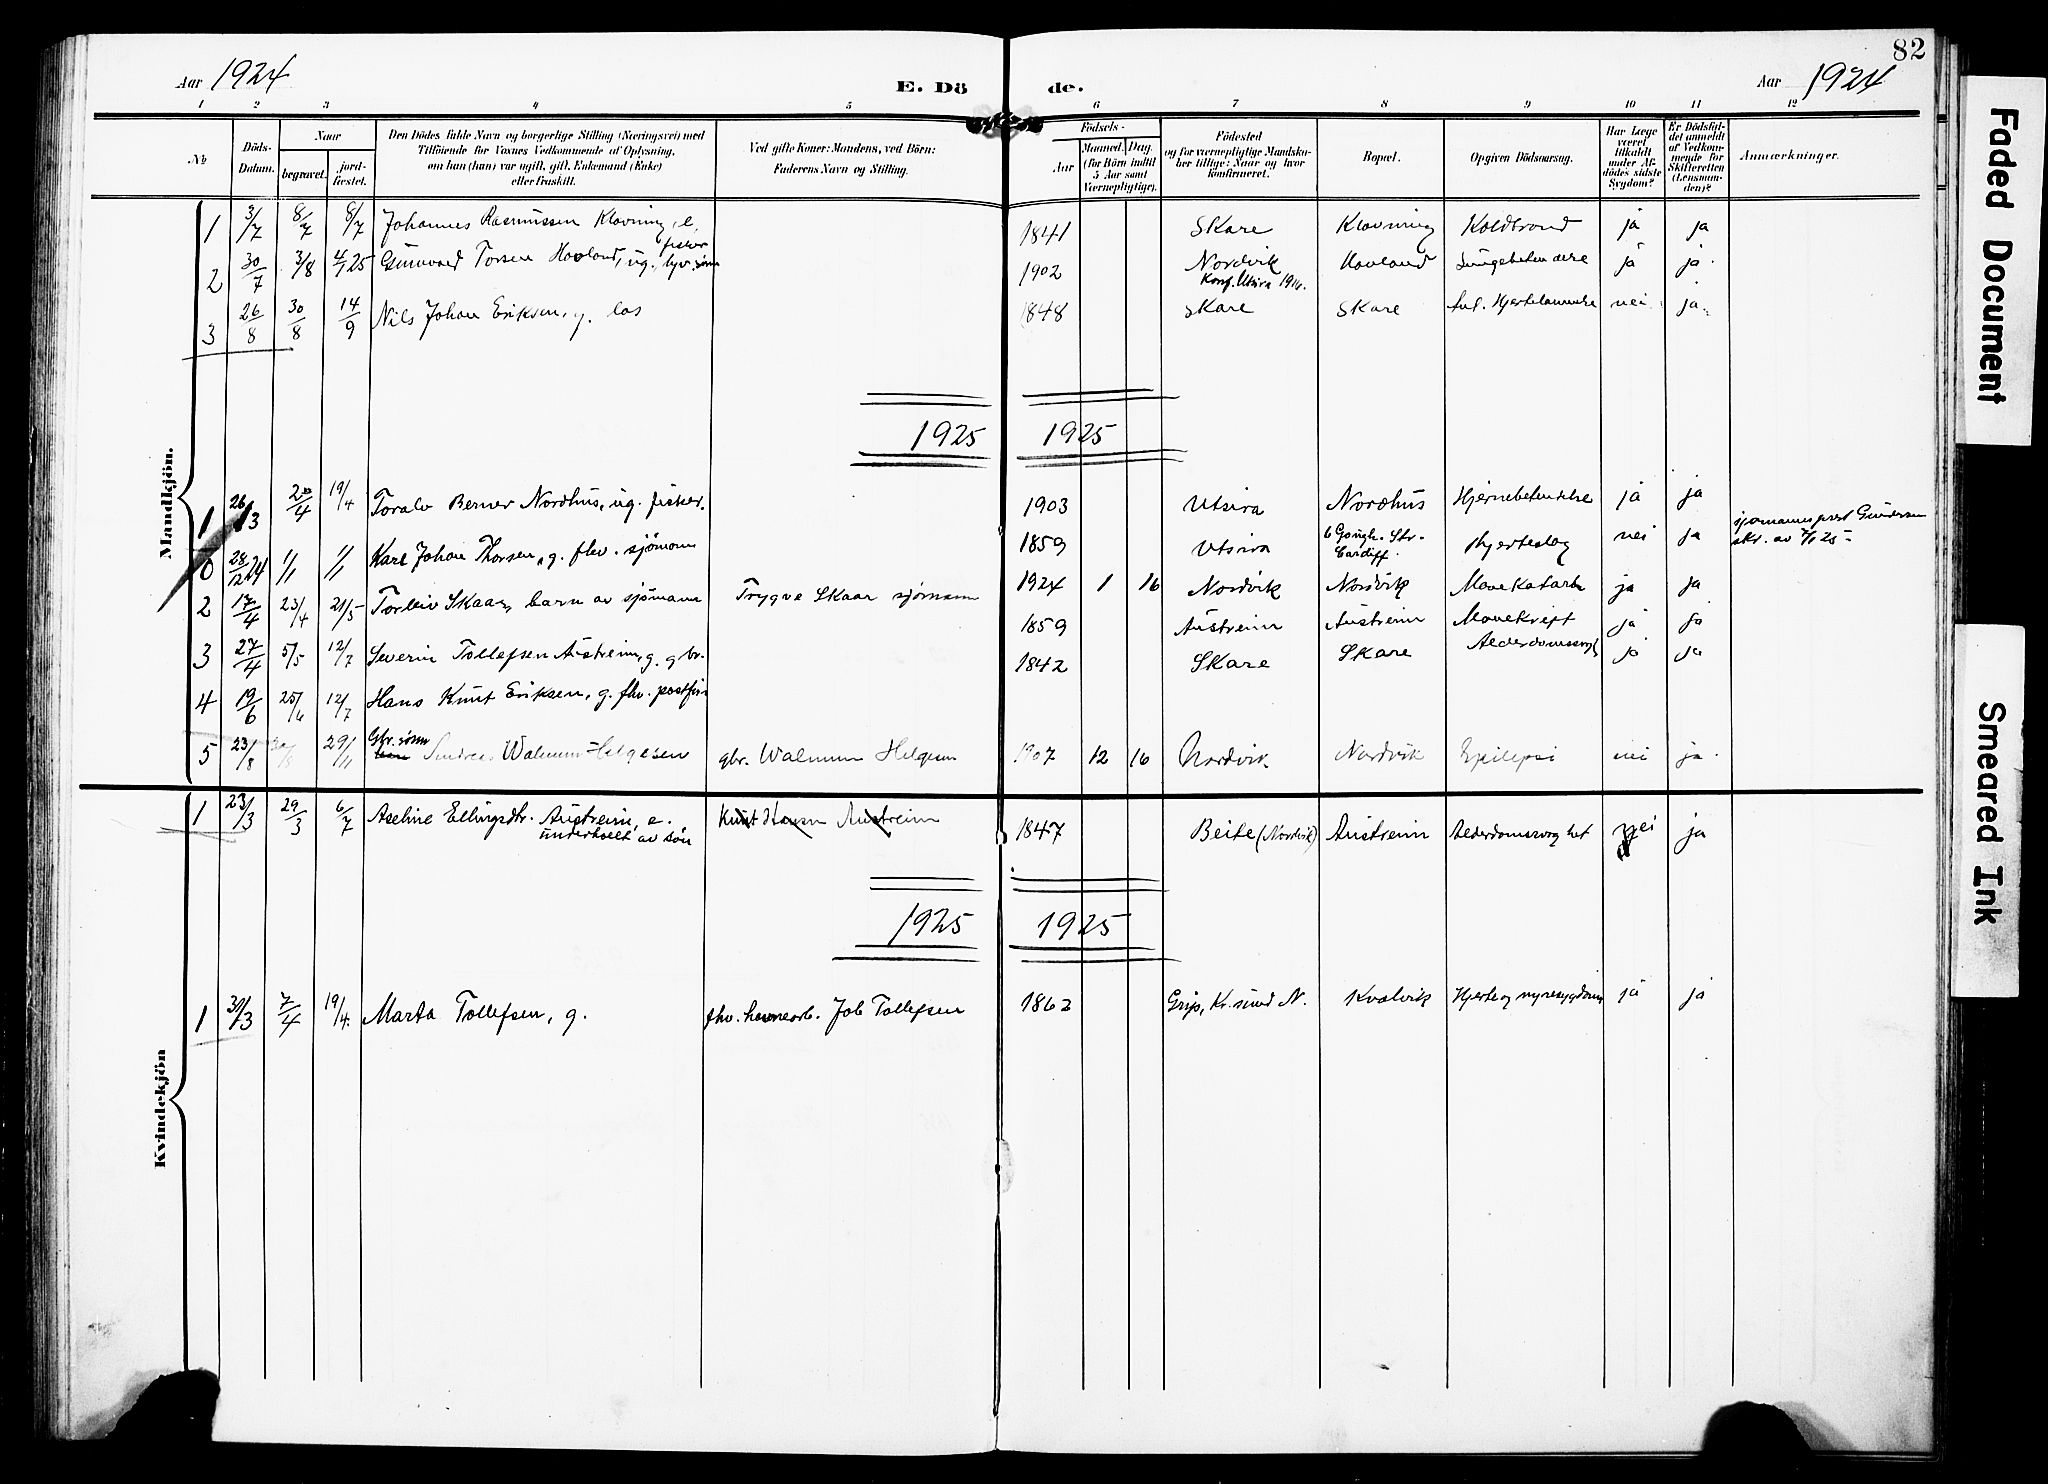 82
Aar 1924
E. Dö
de.
Aar 1924
1 2 3 4 5 6 7 8 9 10 11 12
No
Döds-Datum.
Naar
begravet.
jord-fæstet.
Den Dödes fulde Navn og borgerlige Stilling (Næringsvei) med
Tilföiende for Voxnes Vedkommende af Oplysning,
om han (hun) var ugift, gift, Enkemand (Enke)
eller fraskilt.
Ved gifte Koner: Mandens, ved Börn:
Faderens Navn og Stilling.
Födsels-
Aar
Maaned. Dag.
(for Börn indtil
5 Aar samt
Værnepligtige).
Födested
og for værnepligtige Mandska-
ber tillige: Naar og hvor
konfirmeret.
Bopæl.
Opgiven Dödsaarsag.
Har Læge
været
tilkaldt
under Af-
dödes sidste
Sygdom?
Er Dödsfal-
det anmeldt
af Vedkom-
mende for
Skifteretten
(Lensman-
den)?
Anmærkninger.
Mandkjön.
1 3/7 8/7 8/7 Johannes Rasmussen Klovning, e. fisker 1841 Skare Klovning Koldbrand ja ja
2 30/7 3/8 4/1 25 Gunvald Torsen Hovland, ug., 1902 Nordvik Hovland Lungebetendelse ja ja
Konf. Utsira 1916.
3 26/8 30/8 14/9 Nils Johan Eriksen, g. los 1848 Skare Skare Hjertelammelse nei ja
1925 1925
1 26/3 20/4 19/4 Toralv Berner Nordhus, ug. fisker. 1903 Utsira Nordhus Hjernebetendelse ja ja
0 28/12 24 1/1 1/1 Karl Johan Thorsen, g. fhv. sjömann 1859 Utsira 6 Gough. Str. Cardiff. Hjerteslag nei ja sjømannsprest Gundersen
skr. av 25
2 17/4 23/4 21/5 Torleiv Skaar, barn av sjömann Trygve Skaar sjømann 1924 1 16 Nordvik Nordvik Mavekatarh ja ja
3 27/4 5/5 12/7 Severin Tollefsen Austreim, g. gbr. 1859 Austreim Austreim Mavekreft ja ja
4 19/6 25/6 12/7 Hans Knut Eriksen, g. fhv. 1842 Skare Skare ja ja
5 23/8 30/8 29/11 Gbr. sønn Walnum Helgesen gbr. Walnum Helgesen 1907 12 16 Nordvik Nordvik Epilepsi nei ja
Kvindekjön
1 23/3 29/3 6/7 Aseline Ellingsdtr. Austreim, e. Knut Hansen Austreim 1847 Beite (Nordvik) Austreim nei ja
underholdt av søn
1925 1925
1 31/3 7/4 19/4. Marta Tollefsen, g. fhv. havnearb. Job Tollefsen 1862 Grip, Kr.sund N. Kvalvik Hjerte og nyresygdom ja ja
Faded Document
Smeared Ink